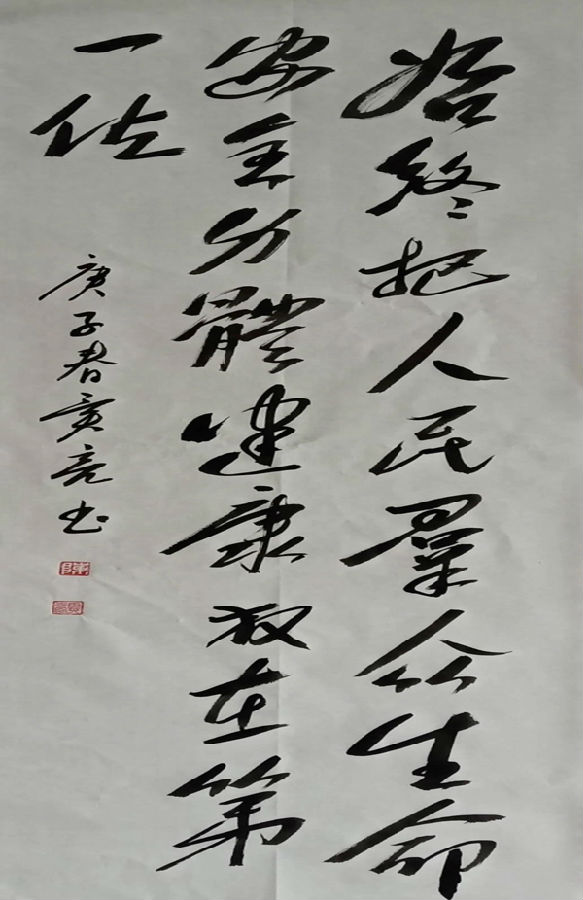 始終把人民羣众生命
安全身體健康放在第
一位
庚子春亮书